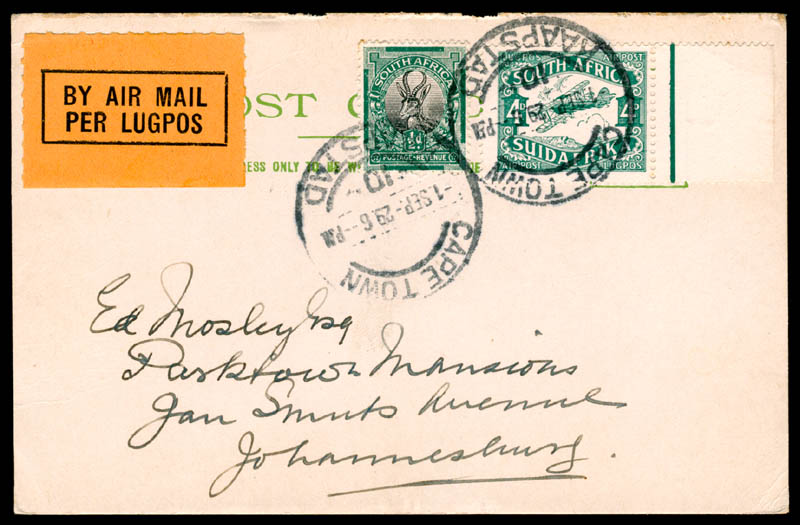 BY AIR MAIL
PER LUGPOS
OST C
RESS ONLY TO BE W
SOUTH AFRICA
½d
POSTAGE-REVENUE
SOUTH AFRICA
4D
SUIDAFRIKA
AIRPOST LUGPOS
KAAPSTAD
CAPE TOWN
STAD
1 SEP 29.6-PM
CAPE TOWN
Ed Mosley Esq
Parktown Mansions
Jan Smuts Avenue
Johannesburg.